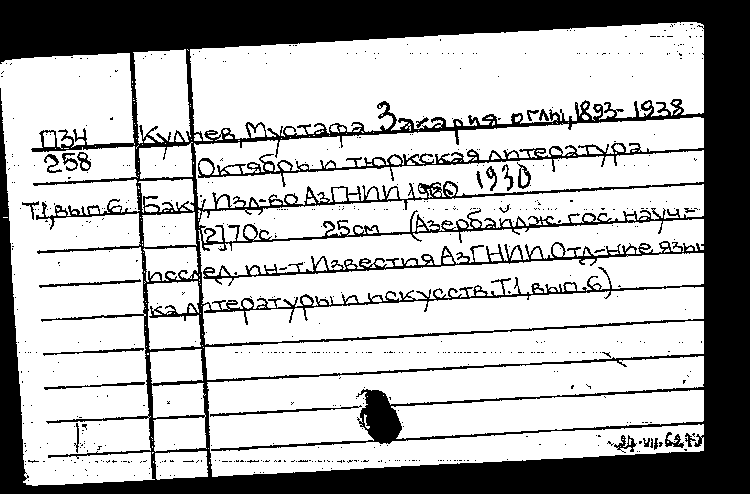 ПЗН Кулиев, Мустафа Захария оглы, 1893-1938
258 Октябрь и тюркская литература.
Т.1, вып.6. Баку, Изд-во АзГНИИ, 1930
[2], 70с. 25см (Азербайдж. гос. науч.-
исслед. ин-т. Известия АзГНИИ. Отд-ние язы-
ка, литературы и искусств. Т.1, вып. 6).